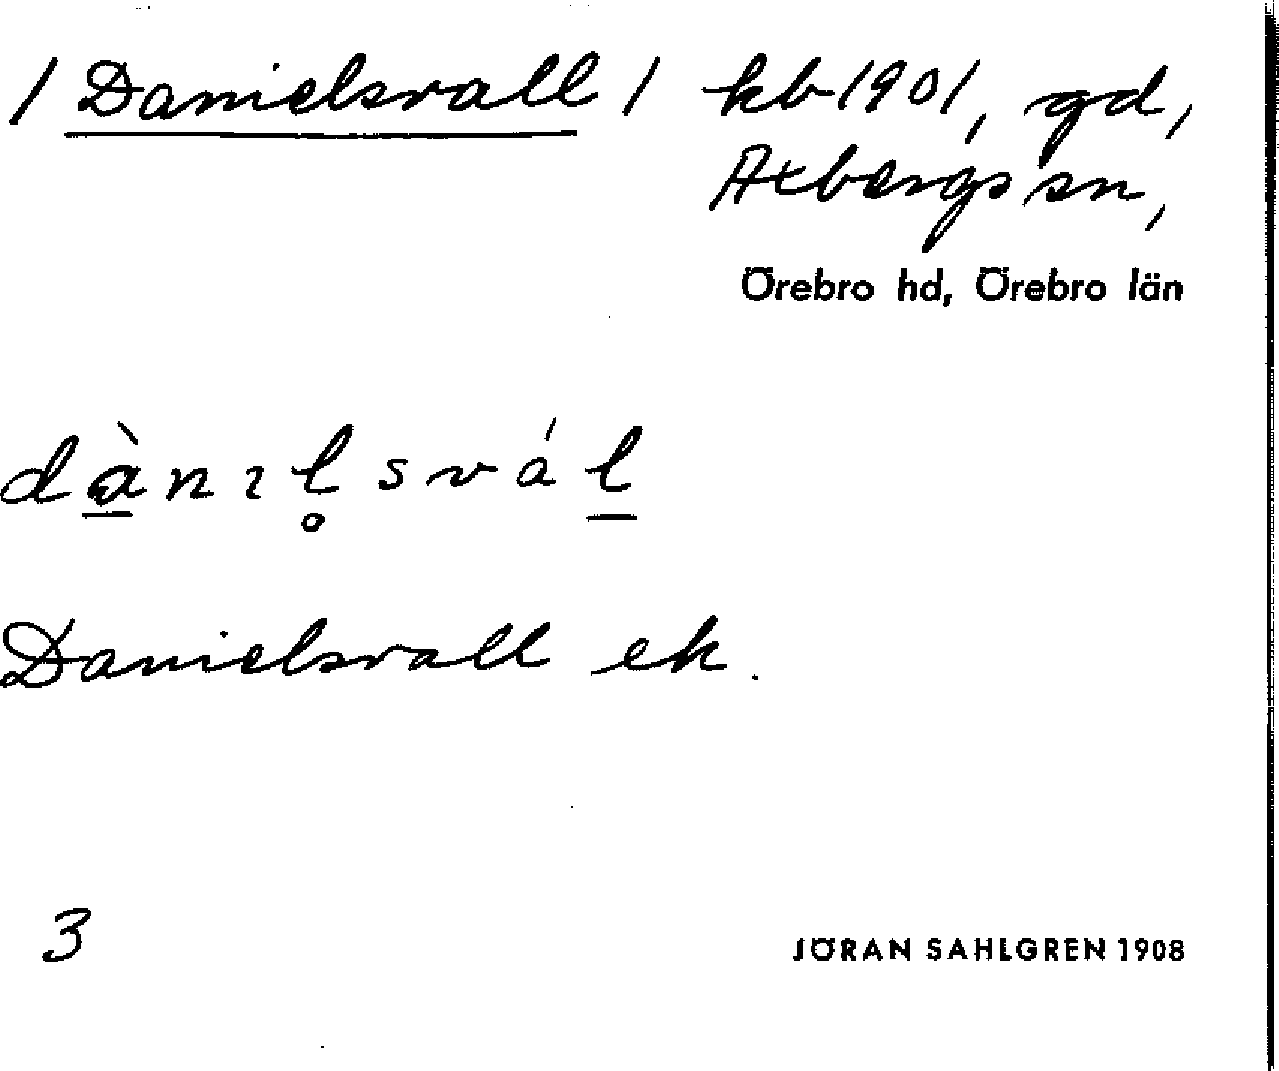 / Danielsvall / kb 1901, gd,
Axbergs sn,
Örebro hd, Örebro län
dànıl̥svál̲
Danielsvall ek.
3
JÖRAN SAHLGREN 1908